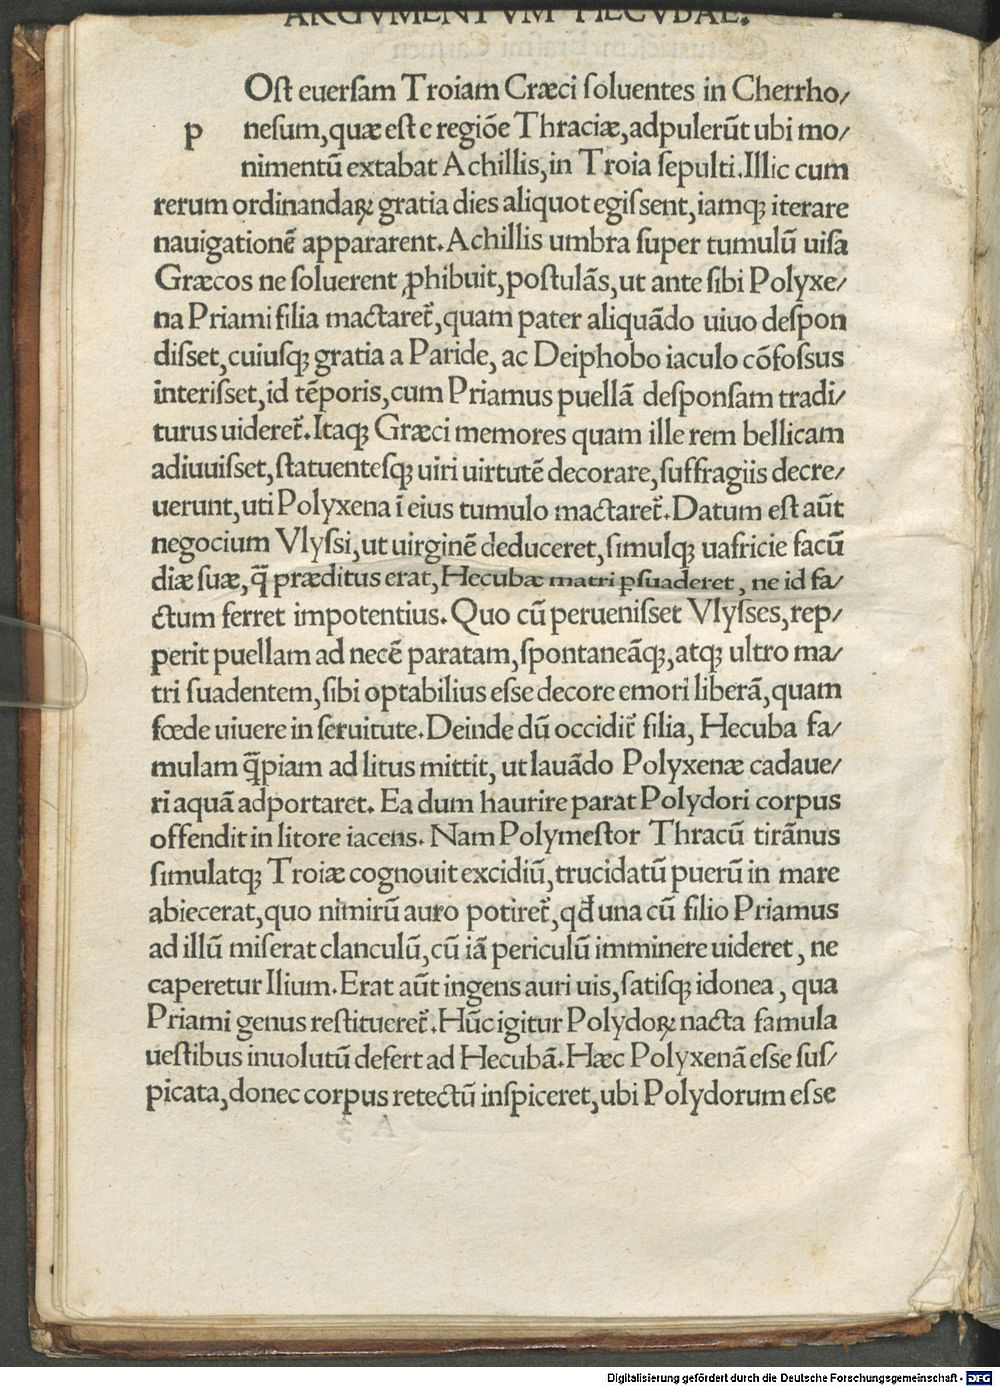 ARGVMENTVM HECVBAE.
Oſt euerſam Troiam Græci ſoluentes in Cherrho/
p neſum, quæ eſt e regiōe Thraciæ, adpulerūt ubi mo/
nimentū extabat Achillis, in Troia ſepulti. Illic cum
rerum ordinandaꝝ gratia dies aliquot egiſsent, iamqꝫ iterare
nauigationē appararent. Achillis umbra ſuper tumulū uiſa
Græcos ne ſoluerent ꝓhibuit, poſtulās, ut ante ſibi Polyxe/
na Priami filia mactaret᷑, quam pater aliquādo uiuo deſpon
diſset, cuiuſqꝫ gratia a Paride, ac Deiphobo iaculo cōfoſsus
interiſset, id tēporis, cum Priamus puellā deſponſam tradi/
turus uideret᷑. Itaqꝫ Græci memores quam ille rem bellicam
adiuuiſset, ſtatuenteſqꝫ uiri uirtutē decorare, ſuffragiis decre/
uerunt, uti Polyxena ī eius tumulo mactaret᷑. Datum eſt aūt
negocium Vlyſsi, ut uirginē deduceret, ſimulqꝫ uafricie facū
diæ ſuæ, q̄ præditus erat, Hecubæ matri ꝑſuaderet, ne id fa/
ctum ferret impotentius. Quo cū perueniſset Vlyſses, rep/
perit puellam ad necē paratam, ſpontaneāqꝫ, atqꝫ ultro ma/
tri ſuadentem, ſibi optabilius eſse decore emori liberā, quam
fœde uiuere in ſeruitute. Deinde dū occidit᷑ filia, Hecuba fa/
mulam q̄piam ad litus mittit, ut lauādo Polyxenæ cadaue/
ri aquā adportaret. Ea dum haurire parat Polydori corpus
offendit in litore iacens. Nam Polymeſtor Thracū tirānus
ſimulatqꝫ Troiæ cognouit excidiū, trucidatū puerū in mare
abiecerat, quo nimirū auro potiret᷑, qđ una cū filio Priamus
ad illū miſerat clanculū, cū iā periculū imminere uideret, ne
caperetur Ilium. Erat aūt ingens auri uis, ſatiſqꝫ idonea, qua
Priami genus reſtitueret᷑. Hūc igitur Polydoꝝ nacta famula
ueſtibus inuolutū defert ad Hecubā. Hæc Polyxenā eſse ſuſ/
picata, donec corpus retectū inſpiceret, ubi Polydorum eſse
Digitalisierung gefördert durch die Deutsche Forschungsgemeinschaft - DFG